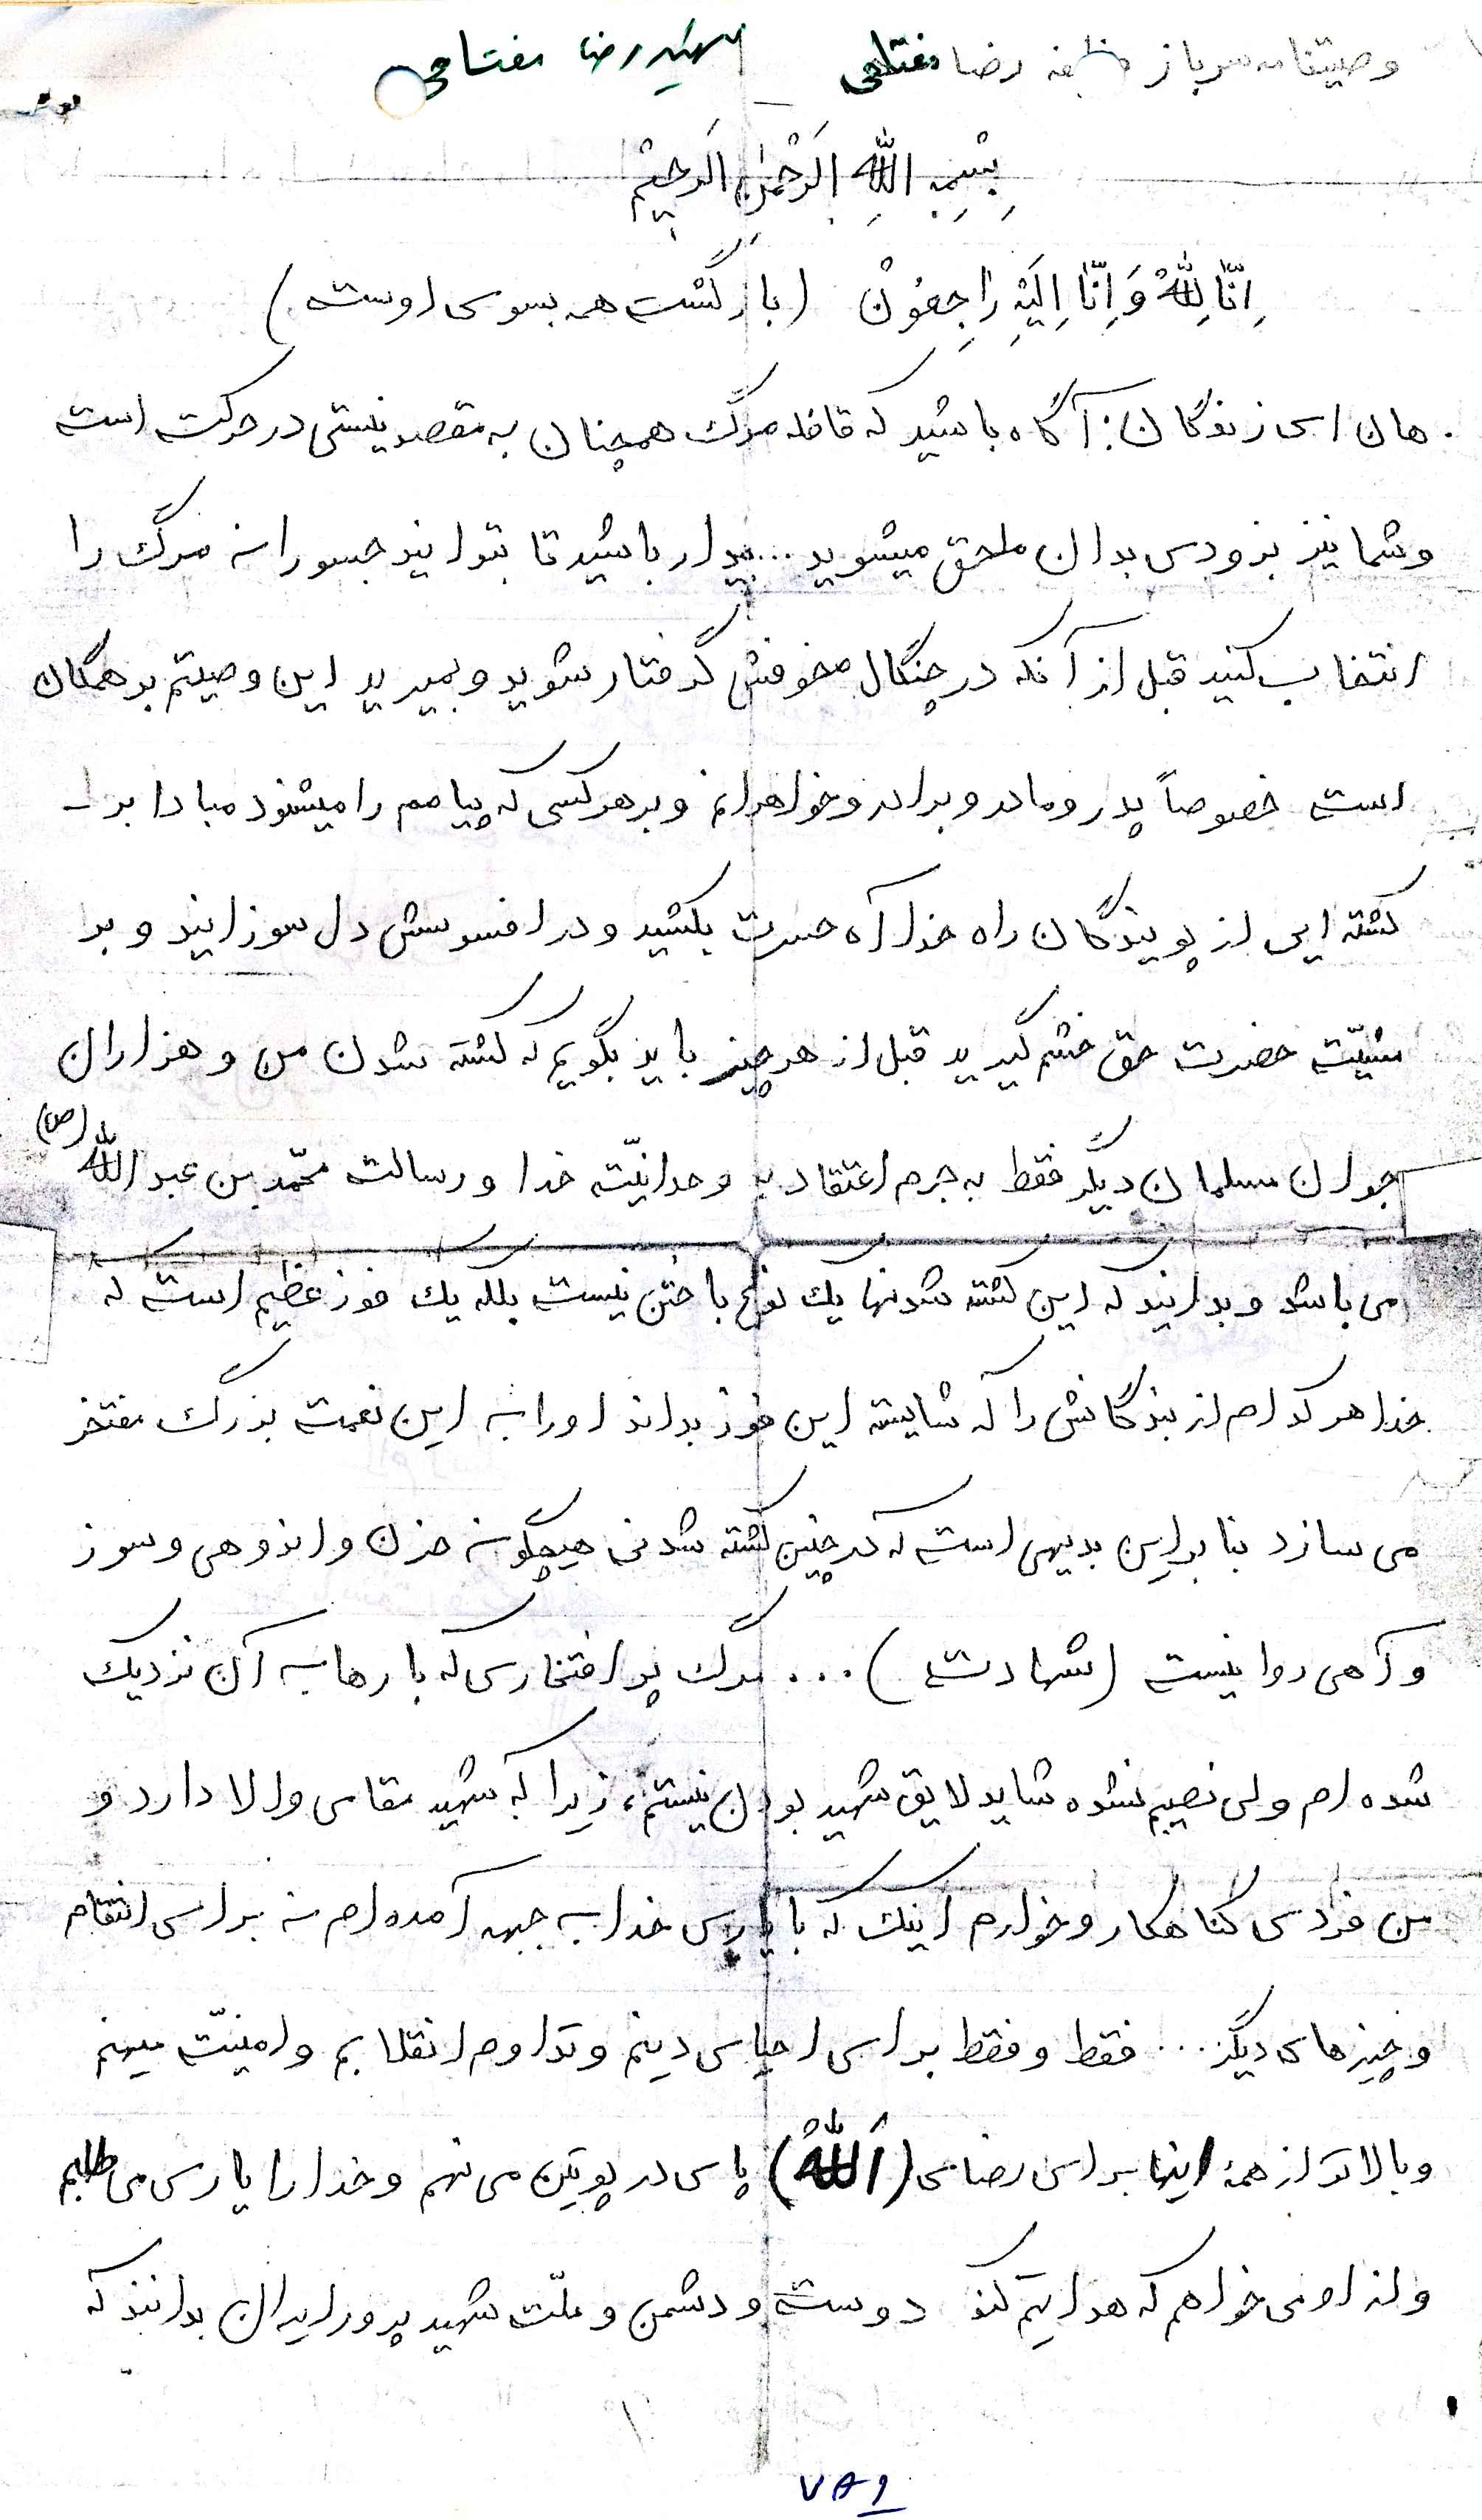 وصیتنامه سرباز وظیفه رضا مفتاحی شهید رضا مفتاحی
بِسْمِ اللهِ الَرَّحْمٰنِ الَرحیِمْ
اِنّا لِلّهْ وَ اِنّا اِلَیْهِ راجِعوُنْ (بازگشت همه بسوی اوست)
هان ای زندگان: آگاه باشید که قافله مرگ همچنان به مقصد نیستی در حرکت است
و شما نیز بزودی بدان ملحق میشوید... بیدار باشید تا بتوانید جسورانه مرگ را
انتخاب کنید قبل از آنکه در چنگال مخوفش گرفتار شوید و بمیرید این وصیتم بر همگان
است خصوصاً پدر و مادر و برادر و خواهرانم و بر هر کسی که پیامم را میشنود مبادا بر
کشته ایی از پویندگان راه خدا آه حسرت بکشید و در افسوسش دل سوزانید و بر
مشیّت حضرت حق خشم گیرید قبل از هر چیز باید بگویم که کشته شدن من و هزاران
جوان مسلمان دیگر فقط به جرم اعتقاد به وحدانیّت خدا و رسالت محمّد بن عبدالله (ص)
می باشد و بدانید که این کشته شدنها یك نوع باختن نیست بلکه یك فوز عظیم است که
خدا هر کدام از بندگانش را که شایسته این فوز بداند او را به این نعمت بزرگ مفتخر
می سازد بنابراین بدیهی است که در چنین کشته شدنی هیچگونه حزن و اندوهی و سوز
و آهی روا نیست (شهادت)... مرگ پر افتخاری که بارها به آن نزدیك
شده ام ولی نصیبم نشده شاید لایق شهید بودن نیستم، زیرا که شهید مقامی والا دارد و
من فردی گناهکار و خوارم اینك که با یاری خدا به جبهه آمده ام نه برای انتقام
و چیزهای دیگر... فقط و فقط برای احیای دینم و تداوم انقلابم و امنیّت میهنم
و بالاتر از همۀ اینها برای رضای (اَللهُ) پای در پوتین می نهم و خدا را یاری می طلبم
و از او می خواهم که هدایتم کند دوست و دشمن و ملّت شهید پرور ایران بدانند که
۱
۷۸۹